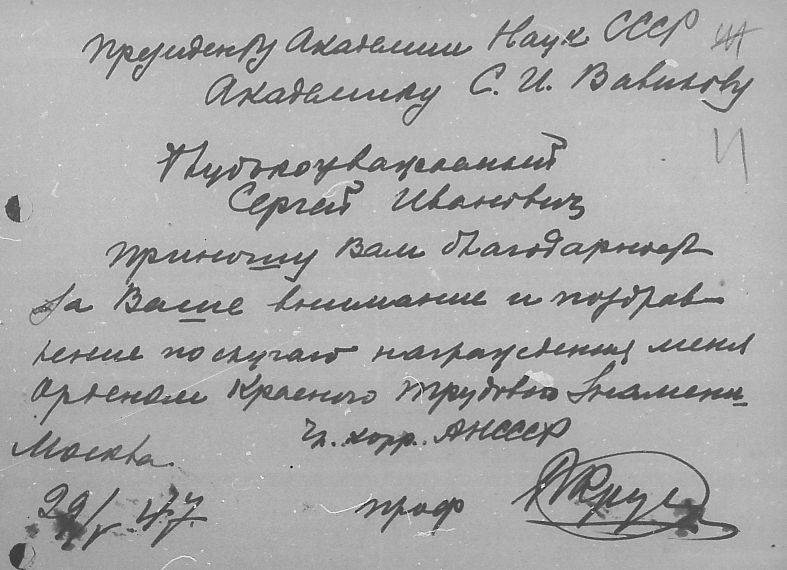 Президенту Академии Наук СССР
Академику С. И. Вавилову
Глубокоуважаемый
Сергей Иванович
приношу Вам благодарность
за Ваше внимание и поздрав-
ление по случаю награждения меня
Орденом Красного Трудового Знамени
Чл. корр. АН СССР
Москва
29/V 47.
проф